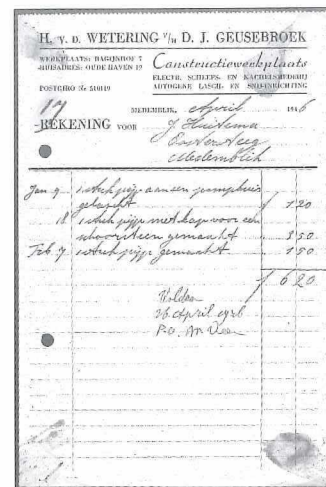 H. v. D. WETERING v/h D. J. GEUSEBROEK
WERKPLAATS: BAGIJNHOF 7
HUISADRES: OUDE HAVEN 19
POSTGIRO Nr 510119
Constructiewerkplaats
ELECTR. SCHEEPS- EN KACHELSMEDERIJ
AUTOGENE LASCH- EN SNIJ-INRICHTING
17
MEDEMBLIK, April 1946
REKENING VOOR J Huitema
Oosterweg
Medemblik
Jan 9 1 stuk pijp aan een pomphuis
gelascht f 1 20
18 1 stuk pijp met kap voor een
schoorsteen gemaakt 3 50
Feb 7 1 stuk pijp gemaakt 1 50
f 6 20
Voldaan
26 April 1946
P.O.